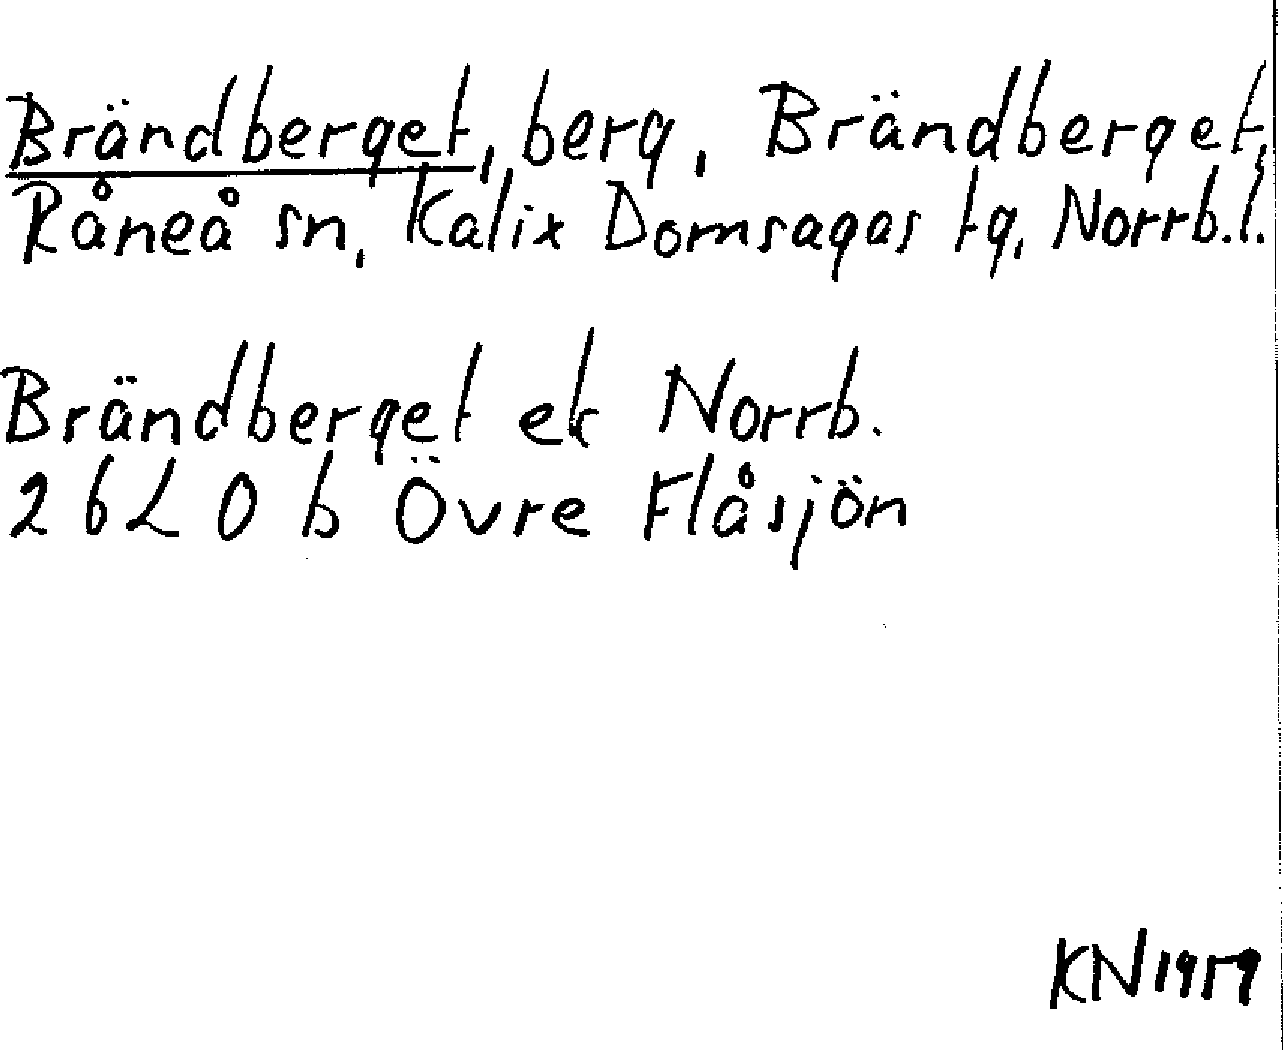 Brändberget, berg, Brändberget,
Råneå sn, Kalix Domsagas tg, Norrb.l.
Brändberget ek Norrb.
26 L 0 b Övre Flåsjön
KN 1959